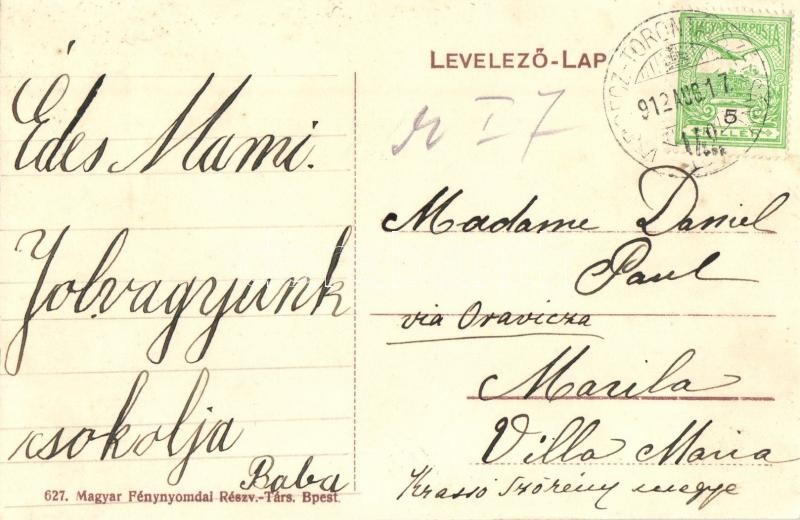 LEVELEZŐ-LAP
MAGYAR KIR. POSTA
5
912 AUG 17
I 7
Édes Mami.
Jólvagyunk
csokolja
Baba
Madame Daniel
Paul
via Oravicza
Marila
Villa Maria
Krassó Szörény megye
627. Magyar Fénynyomdai Részv.-Társ. Bpest.